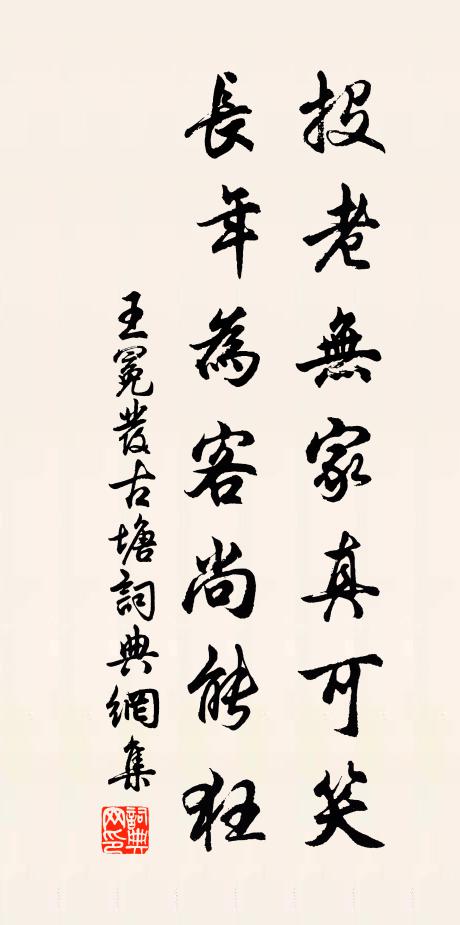 投老無家真可笑
長年為客尚能狂
王冕發古塘詞典網集
詞典网印